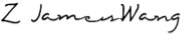 Z JamesWang